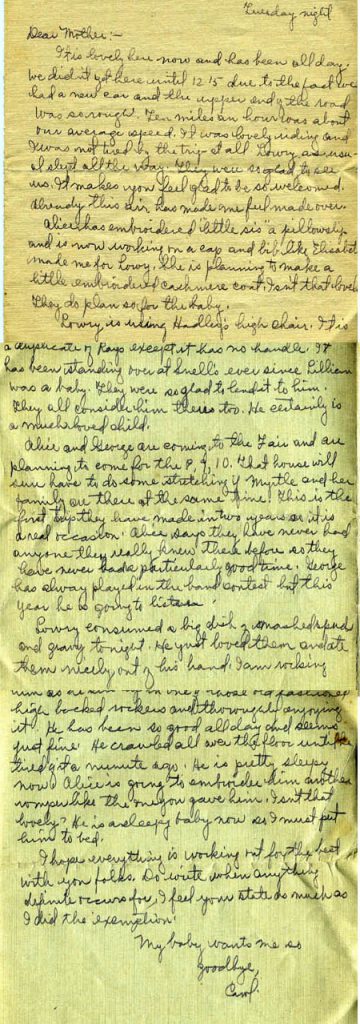 Tuesday night
Dear Mother:-
It is lovely here now and has been all day.
We didn't get here until 12:15 due to the fact we
had a new car and the upper end of the road
was so rough. Ten miles an hour was about
our average speed. It was lovely riding and
I was not tired by the trip at all. Lowry as usu-
al slept all the way. They were so glad to see
us. It makes you feel glad to be so welcomed.
Already this air has made me feel made over.
Alice has embroidered "little sis" a pillowslip
and is now working on a cap and bib like Elizabeth
made me for Lowry. She is planning to make a
little embroidered cashmere coat. Isn't that lovely
They do plan so for the baby.
Lowry is using Hadley's high chair. It is
a duplicate of Rays except it has no handle. It
has been standing over at Snell's ever since Lillian
was a baby. They were so glad to lend it to him.
They all consider him theirs too. He certainly is
a much loved child.
Alice and George are coming to the Fair and are
planning to come for the 8, 9, 10. That house will
sure have to do some stretching if Myrtle and her
family are there at the same time. This is the
first trip they have made in two years so it is
a real occasion. Alice says they have never had
anyone they really knew there before so they
have never had a particularly good time. George
has always played in the band contest but this
year he is going to listen.
Lowry consumed a big dish of smashed spuds
and gravy tonight. He just loved them and ate
them nicely out of his hand. I am rocking
him as in one of those old fashioned
high backed rockers and thoroughly enjoying
it. He has been so good all day and seems
just fine. He crawled all over the floor until he
tired git a minute ago. He is pretty sleepy
now. Alice is going to embroider him another
romper like the one you gave him. Isn't that
lovely? He is a sleepy baby now so I must put
him to bed.
I hope everything is working out for the best
with you folks. Do write when anything
definite occurs for, I feel your state as much as
I did the exemption.
My baby wants me so
Goodbye,
Carol.